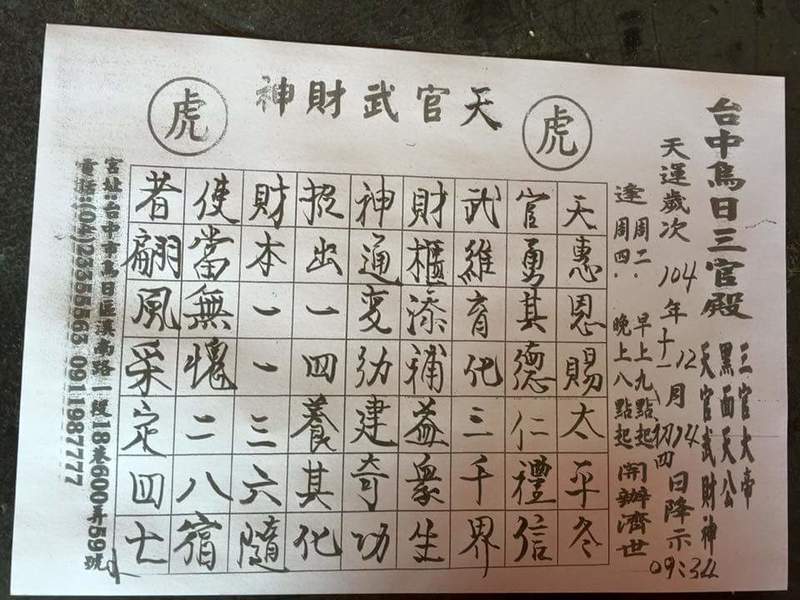 台中烏日三官殿
三官大帝
黑面天公
天官武財神
天運歲次104年十一12月初四14日降示
09:34
逢周二.早上九點起
周四.晚上八點起
開辦濟世
虎
天官武財神
虎
天惠恩賜太平冬
官勇其德仁禮信
武維育化三千界
財櫃添補益衆生
神通变効建奇功
招出一四養其化
財本一一三六隨
使當無愧二八宿
者翩風采定四
宮址:台中市烏日區溪南路一段18巷600弄59號
電話:(04)23355563 0911987777